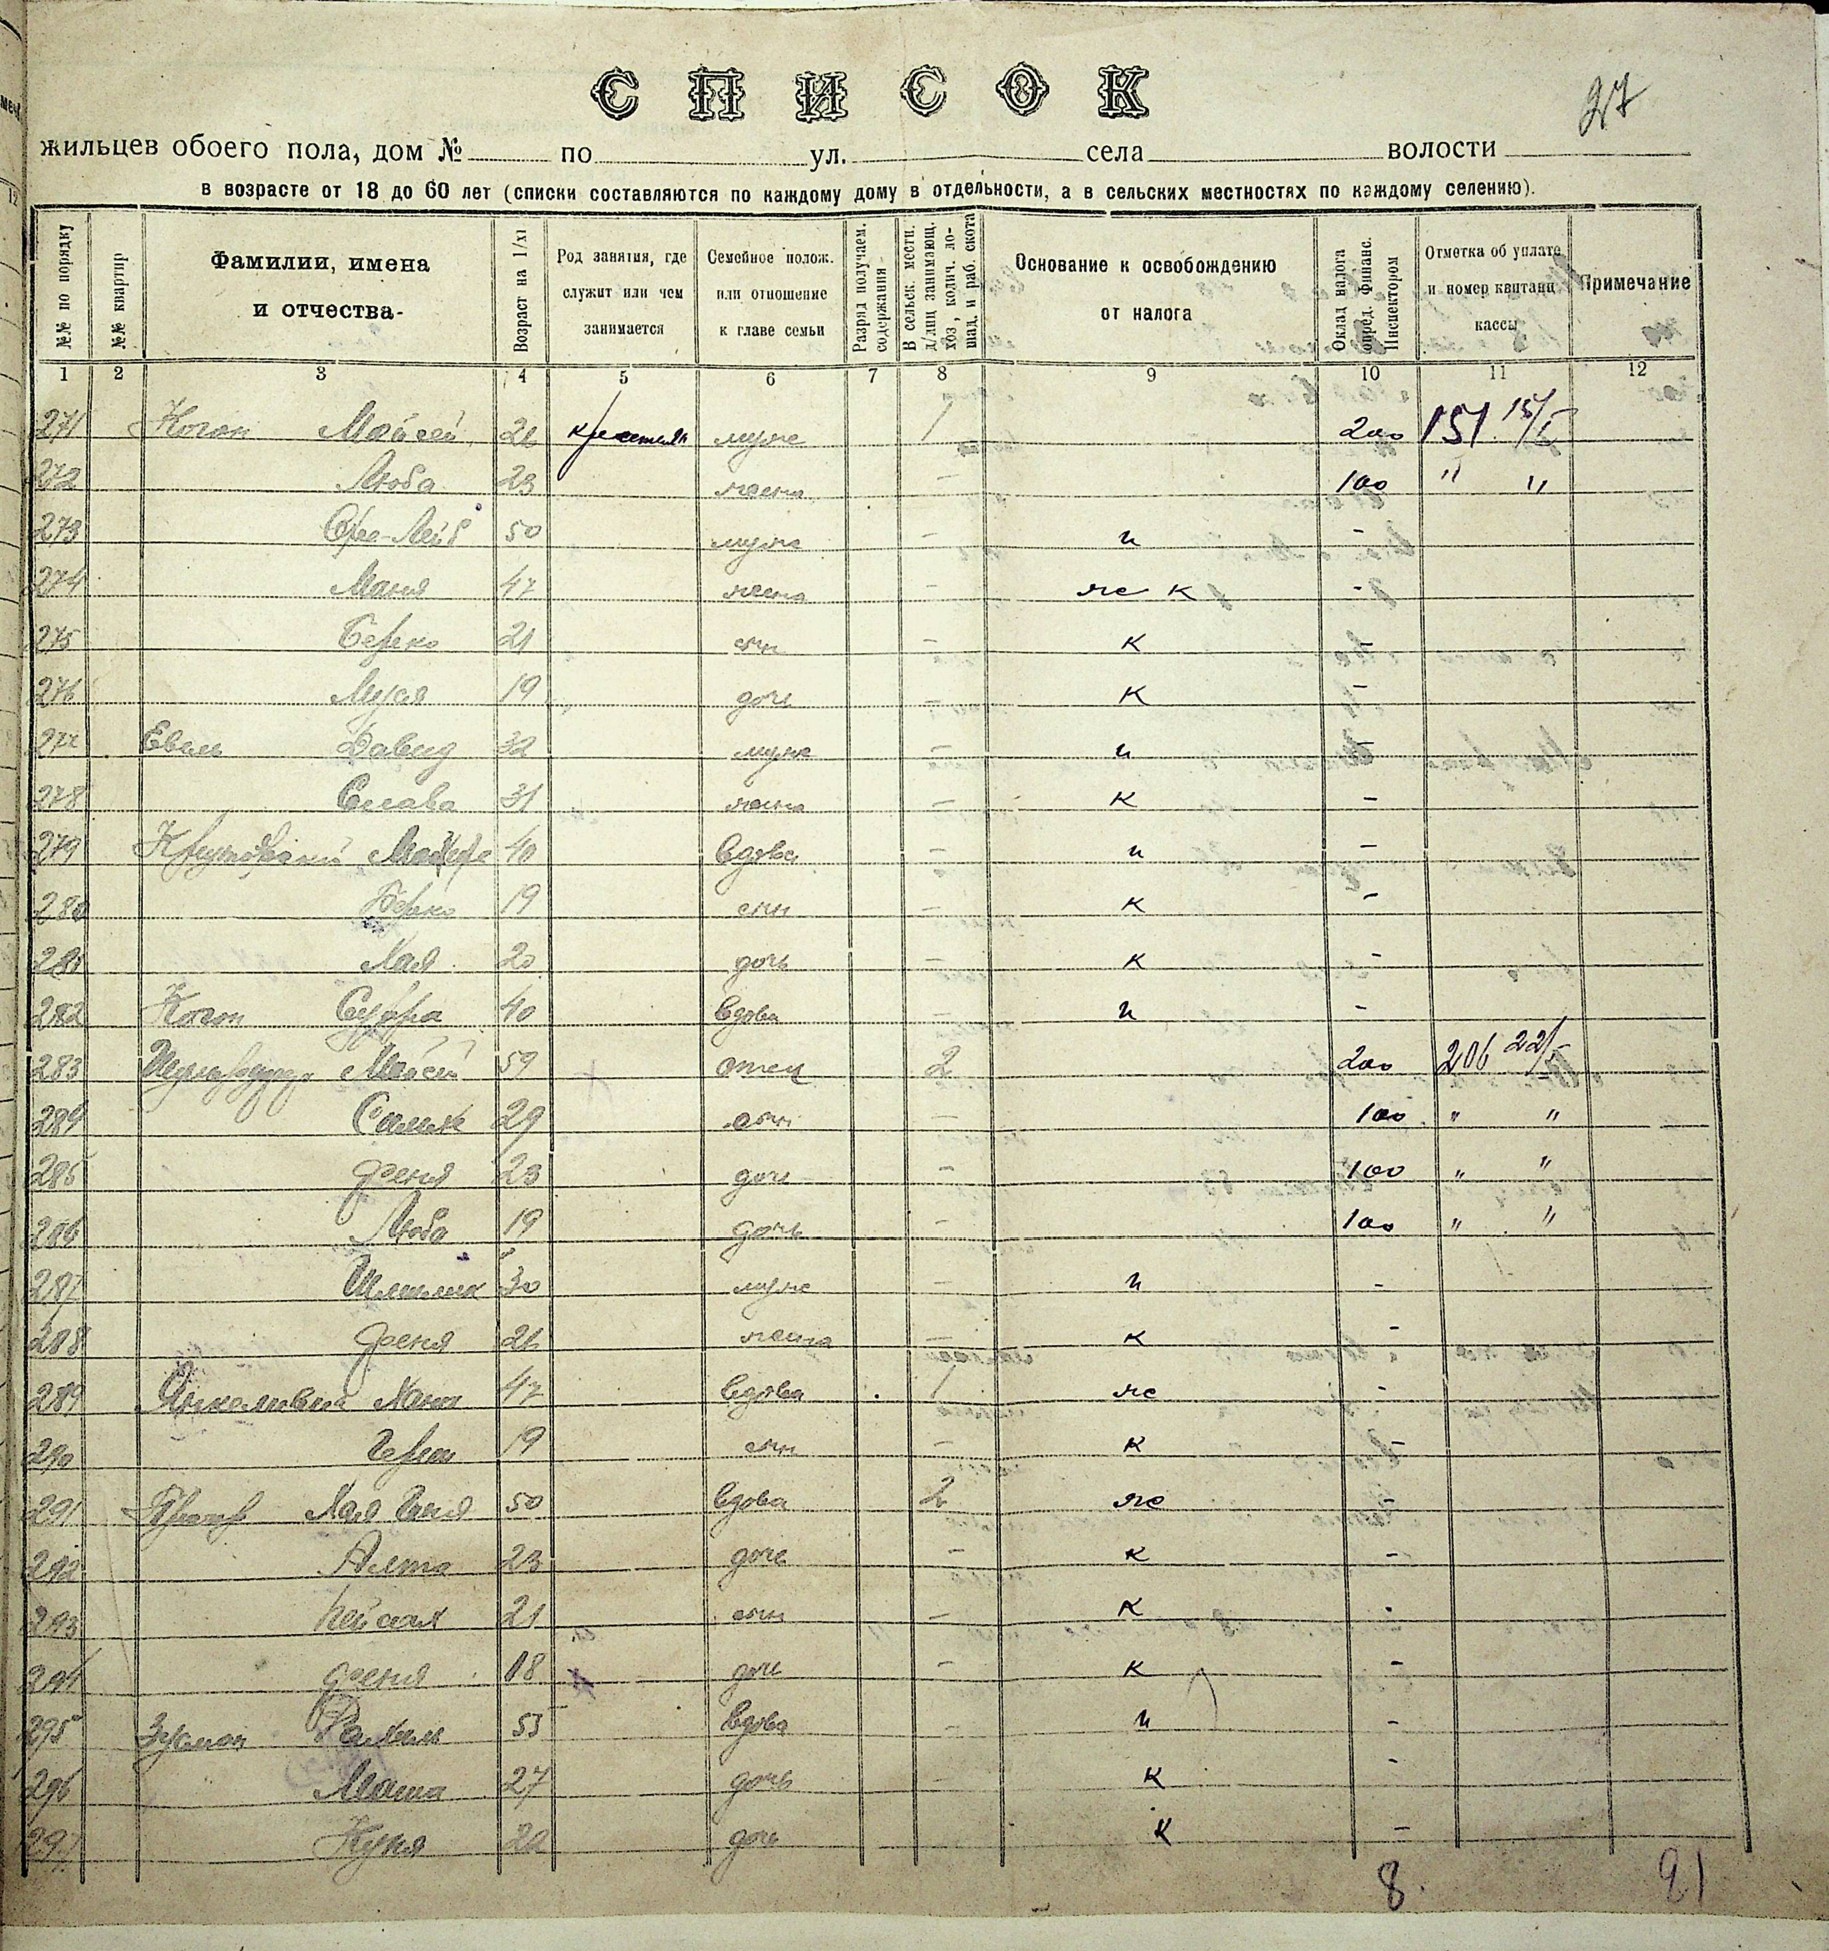 СПИСОК
27
жильцев обоего пола, дом № по ул. села волости
в возрасте от 18 до 60 лет (списки составляются по каждому дому в отдельности, а в сельских местностях по каждому селению).
№№ по порядку
№№ квартир
Фамилии, имена и отчества-
Возраст на 1/XI
Род занятия, где служит или чем занимается
Семейное полож. или отношение к главе семьи
Разряд получаем. содержания
В сельск. местн. д/лиц занимающ. хоз, колич. лошад. и раб. скота
Основание к освобождению от налога
Оклад налога опред. Финанс. Инспектором
Отметка об уплате и номер квитанц кассы
Примечание
1 2 3 4 5 6 7 8 9 10 11 12
271 Коган Мойсей муж 1 200 151 15/I
272 Люба 23 жена - 100 " "
273 50 муж - и -
274 Маня 47 жена - же к -
275 Берко 21 сын - к -
276 19 дочь - к -
277 Давид 32 муж - и -
278 Слава 31 жена - к -
279 40 вдова - и -
280 Берко 19 сын - к -
281 Хая 20 дочь - к -
282 Коган Сура 40 вдова - и -
283 Мойсей 59 отец 2 200 206 22/I
284 29 сын - 100 " "
285 Феня 23 дочь - 100 " "
286 Люба 19 дочь - 100 " "
287 30 муж - и -
288 Феня жена - к -
289 47 вдова 1 же -
290 19 сын - к -
291 Хая 50 вдова 2 же -
292 23 дочь - к -
293 Пейсах 21 сын - к -
294 Феня 18 дочь - к -
295 Зусман Рахиль 53 вдова - и -
296 Маша 27 дочь - к -
297 Куня дочь к -
8. 21